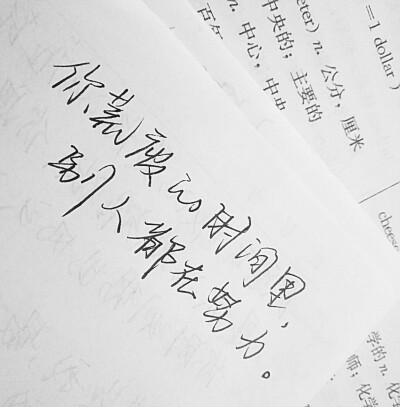 你荒废的时间里,
别人都在努力。
=1 dollar)
eter) n. 公分，厘米
中央的；主要的
n. 中心，中央
百年
cheese
学的 n. 化学
师；化学